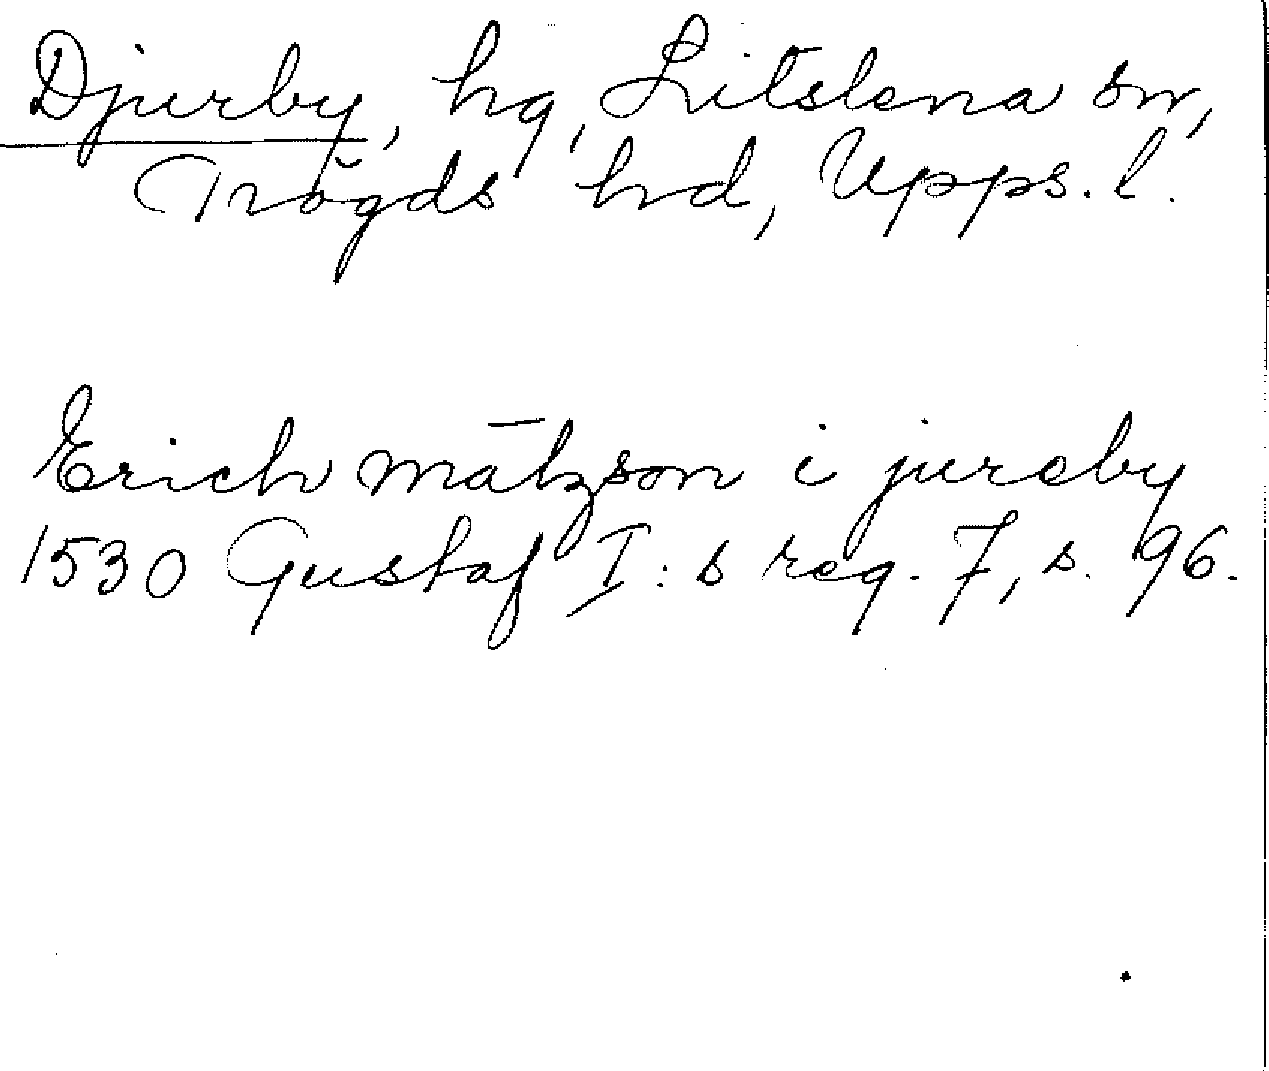 Djurby, hg, Litslena sn,
Trögds hd, Upps. l.
Erich mātzson i jureby
1530 Gustaf I:s reg. 7, s. 96.